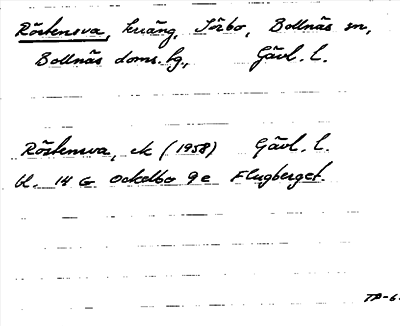 Röstensva, kväng, Sörbo, Bollnäs sn,
Bollnäs doms. hg., Gävl. l.
Röstensva, ek (1958) Gävl. l.
bl. 14 G Ockelbo 9e Flugberget.
TP-6